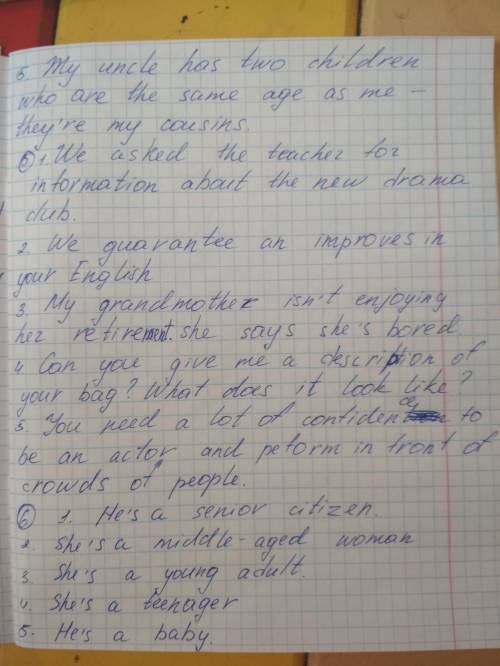 5. My uncle has two children
who are the same age as me –
they're my cousins.
⑤ 1. We asked the teacher for
information about the new drama
club.
2. We guarantee an improves in
your English
3. My grandmother isn't enjoying
her retirement. She says she's bored
4. Can you give me a description of
your bag? What does it look like?
5. You need a lot of confidency to
be an actor and peform in front of
crowds of people.
⑥ 1. He's a senior citizen.
2. She's a middle-aged woman
3. She's a young adult.
4. She's a teenager
5. He's a baby.